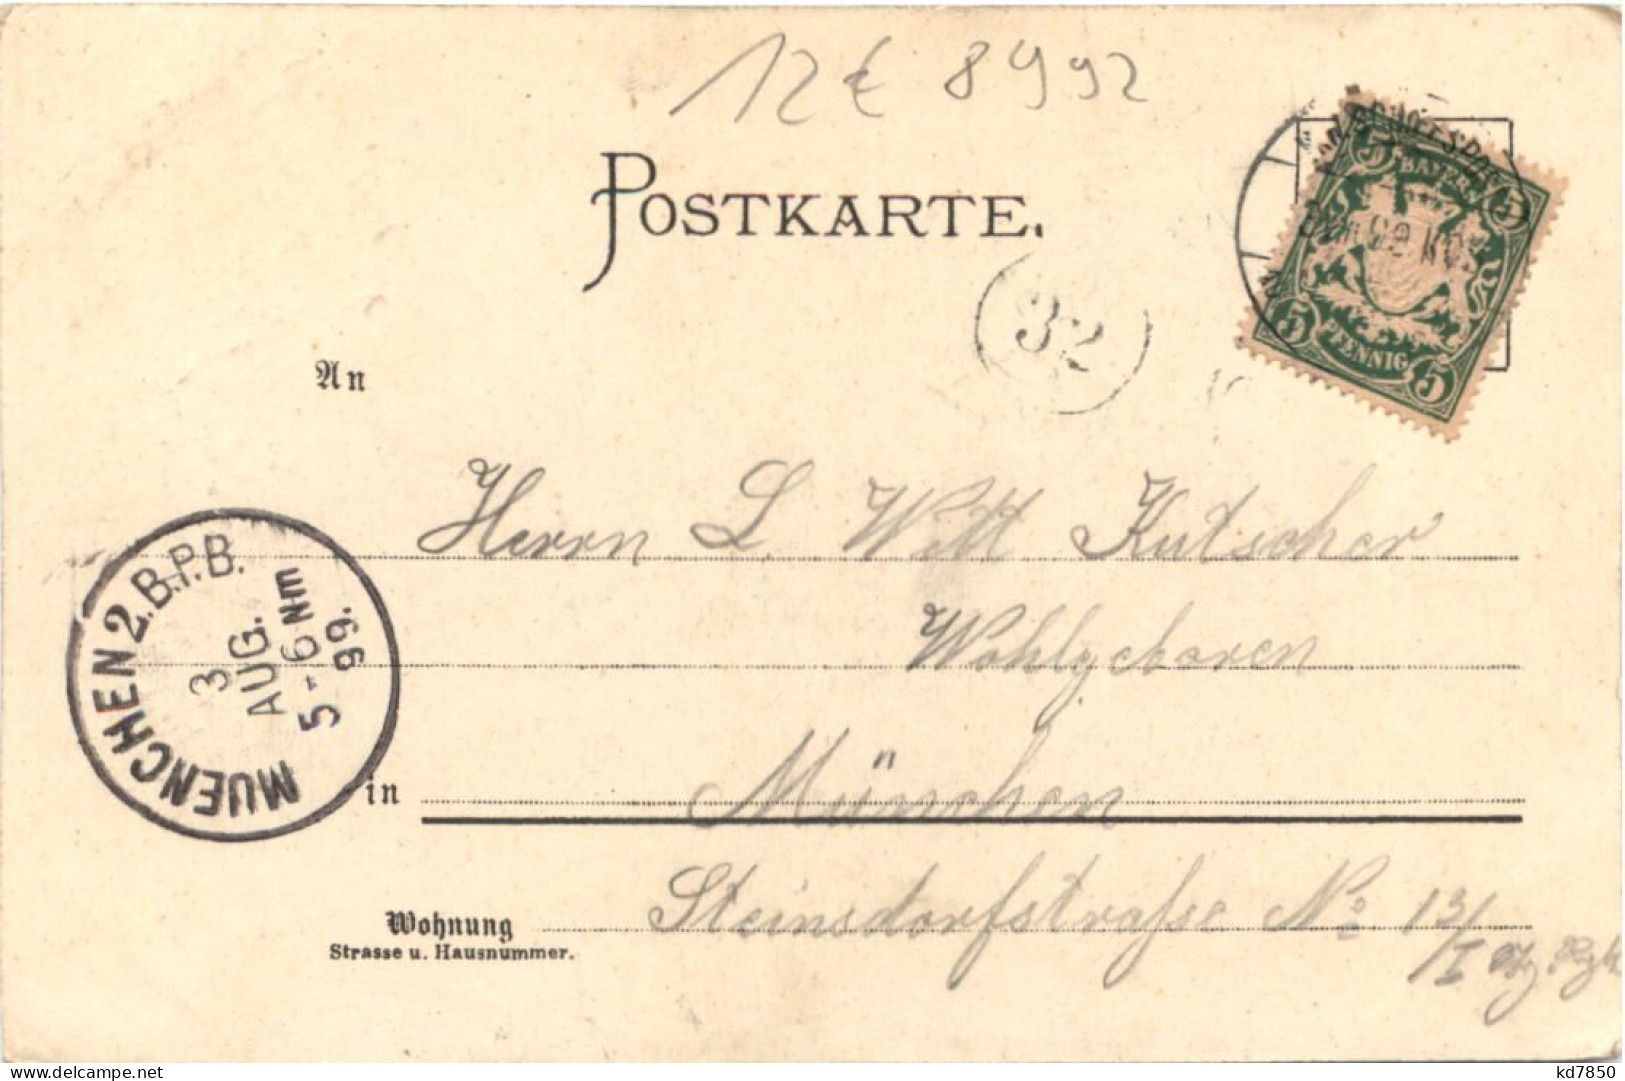 12 € 8992
POSTKARTE.
BAYERN
5 5 5 5
PFENNIG
32
An
Herrn L. Witt Kutscher
Wohlgeboren
MUENCHEN 2. B.P.B.
3
AUG.
5-6 Nm
99.
in München
Wohnung Steinsdorfstraße No 13/I
Strasse u. Hausnummer.
www.delcampe.net
kd7850